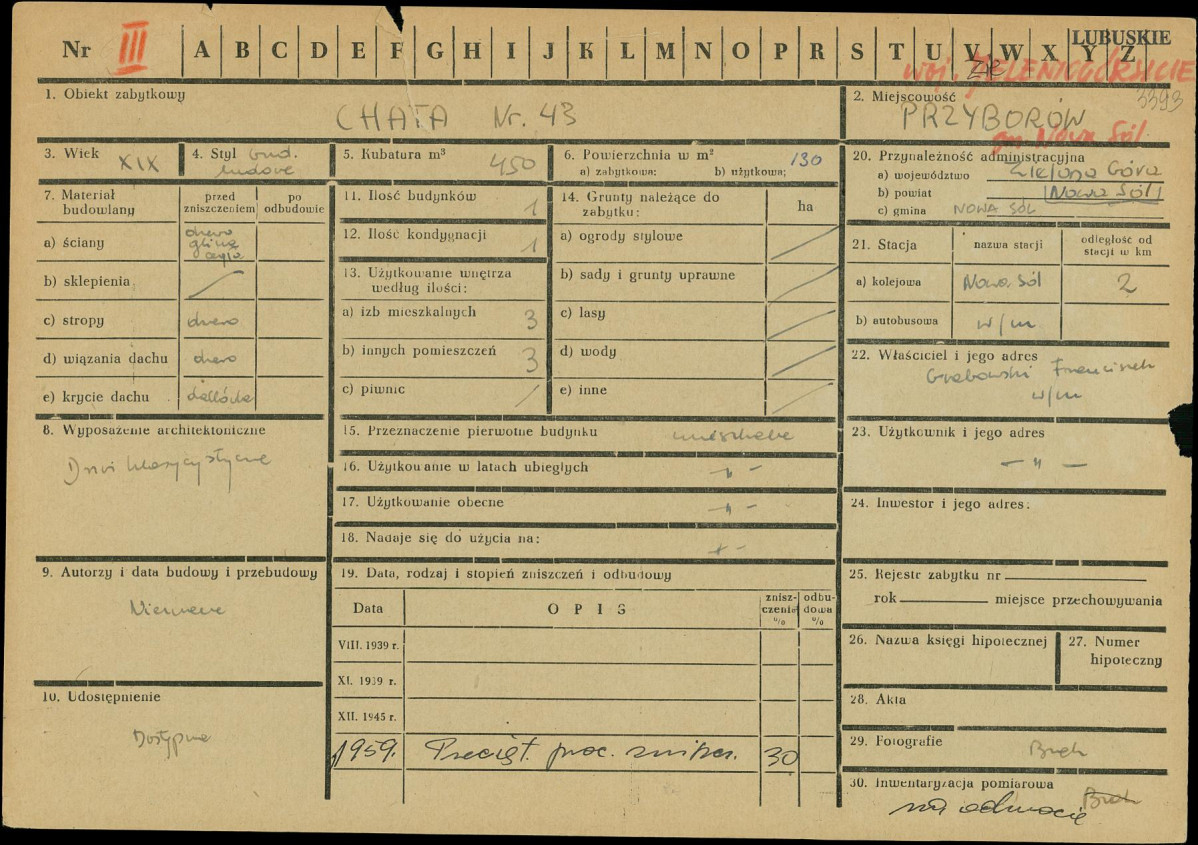 Nr III A B C D E F G H I J K L M N O P R S T U V W X Y Z
LUBUSKIE
woj. ZIELENIOGÓRSKIE
3393
1. Obiekt zabytkowy
CHATA Nr. 43
2. Miejscowość
PRZYBORÓW
gm. Nowa Sól
3. Wiek XIX
4. Styl bud.
ludowe
5. Kubatura m³ 450
6. Powierzchnia w m² 130
a) zabytkowa: b) użytkowa:
7. Materiał budowlany
przed zniszczeniem
po odbudowie
a) ściany drewno glina cegła
b) sklepienia
c) stropy drewno
d) wiązania dachu drewno
e) krycie dachu dachówka
8. Wyposażenie architektoniczne
Drzwi klasycystyczne
9. Autorzy i data budowy i przebudowy
Nieznane
10. Udostępnienie
Dostępne
11. Ilość budynków 1
12. Ilość kondygnacji 1
13. Użytkowanie wnętrza według ilości:
a) izb mieszkalnych 3
b) innych pomieszczeń 3
c) piwnic /
14. Grunty należące do zabytku:
ha
a) ogrody stylowe
b) sady i grunty uprawne
c) lasy
d) wody
e) inne
15. Przeznaczenie pierwotne budynku mieszkalne
16. Użytkowanie w latach ubiegłych - " -
17. Użytkowanie obecne - " -
18. Nadaje się do użycia na: - " -
19. Data, rodzaj i stopień zniszczeń i odbudowy
Data OPIS zniszczenie % odbudowa %
VIII. 1939 r.
XI. 1939 r.
XII. 1945 r.
1959. Przecięt. proc. zniszcz. 30
20. Przynależność administracyjna
a) województwo Zielona Góra
b) powiat Nowa Sól
c) gmina NOWA SÓL
21. Stacja nazwa stacji odległość od stacji w km
a) kolejowa Nowa Sól 2
b) autobusowa w/m
22. Właściciel i jego adres
Grabowski Franciszek
w/m
23. Użytkownik i jego adres
- " -
24. Inwestor i jego adres:
25. Rejestr zabytku nr
rok miejsce przechowywania
26. Nazwa księgi hipotecznej
27. Numer hipoteczny
28. Akta
29. Fotografie
Brak
30. Inwentaryzacja pomiarowa
Brak
na odwrocie